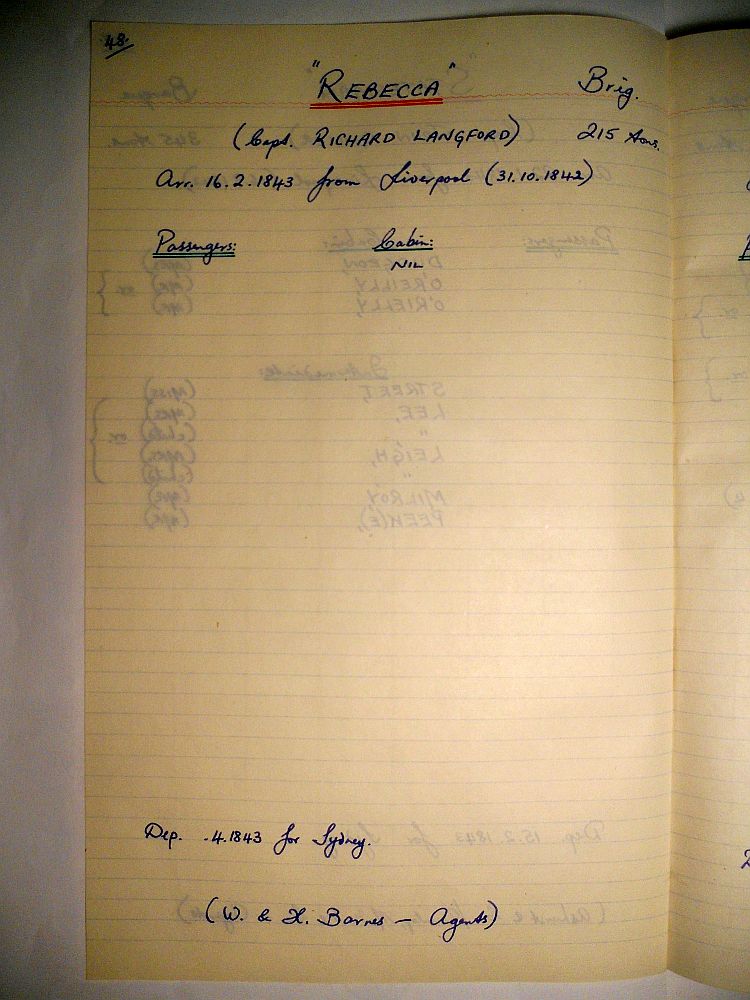 48
"REBECCA" Brig.
(Capt. RICHARD LANGFORD) 215 tons.
Arr. 16.2.1843 from Liverpool (31.10.1842)
Passengers: Cabin:
NIL
Dep. .4.1843 for Sydney.
(W. & H. Barnes — Agents)